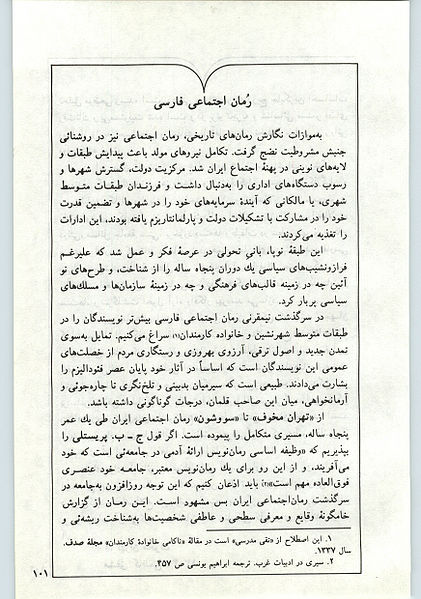 رُمان اجتماعی فارسی
به‌موازات نگارش رمان‌های تاریخی، رمان اجتماعی نیز در روشنائی
جنبش مشروطیت نضج گرفت. تکامل نیروهای مولد باعث پیدایش طبقات و
لایه‌های نوینی در پهنهٔ اجتماع ایران شد. مرکزیت دولت، گسترش شهرها و
رسوب دستگاه‌های اداری را به‌دنبال داشت و فرزندان طبقات متوسط
شهری، یا مالکانی که آیندهٔ سرمایه‌های خود را در شهرها و تضمین قدرت
خود را در مشارکت با تشکیلات دولت و پارلمانتاریزم یافته بودند، این ادارات
را تغذیه می‌کردند.
این طبقهٔ نوپا، بانی تحولی در عرصهٔ فکر و عمل شد که علیرغم
فرازونشیب‌های سیاسی یك دوران پنجاه ساله را از شناخت، و طرح‌های نو
آئین چه در زمینه قالب‌های فرهنگی و چه در زمینهٔ سازمان‌ها و مسلك‌های
سیاسی پربار کرد.
در سرگذشت نیمقرنی رمان اجتماعی فارسی بیش‌تر نویسندگان را در
طبقات متوسط شهرنشین و خانواده کارمندان(۱) سراغ می‌کنیم. تمایل به‌سوی
تمدن جدید و اصول ترقی، آرزوی بهروزی و رستگاری مردم از خصلت‌های
عمومی این نویسندگان است که اساساً در آثار خود پایان عصر فئودالیزم را
بشارت می‌دادند. طبیعی است که سیرمیان بدبینی و تلخ‌نگری تا چاره‌جوئی و
آرمانخواهی، میان این صاحب قلمان، درجات گوناگونی داشته باشد.
از «تهران مخوف» تا «سووشون» رمان اجتماعی ایران طی یك عمر
پنجاه ساله، مسیری متکامل را پیموده است. اگر قول ج ـ ب. پریستلی را
بپذیریم که «وظیفه اساسی رمان‌نویس ارائهٔ آدم در جامعه‌ئی است که خود
می‌آفریند، و از این رو برای یك رمان‌نویس معتبر، جامعه خود عنصری
فوق‌العاده مهم است»(۲) باید اذعان کنیم که این توجه روزافزون به‌جامعه در
سرگذشت رمان‌اجتماعی ایران بس مشهود است. این رمان از گزارش
خامگونهٔ وقایع و معرفی سطحی و عاطفی شخصیت‌ها به‌شناخت ریشه‌ئی و
۱. این اصطلاح از «تقی مدرسی» است در مقالهٔ «ناکامی خانوادهٔ کارمندان» مجلهٔ صدف.
سال ۱۳۳۷.
۲. سیری در ادبیات غرب. ترجمه ابراهیم یونسی ص ۴۵۷.
۱۰۱